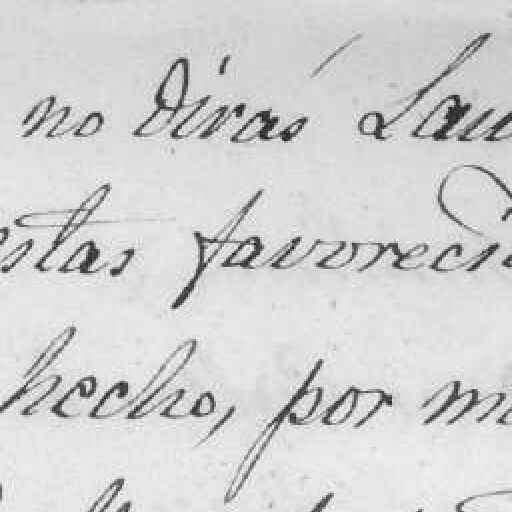 no dirás Lau
estas favoreci
hecho, por m